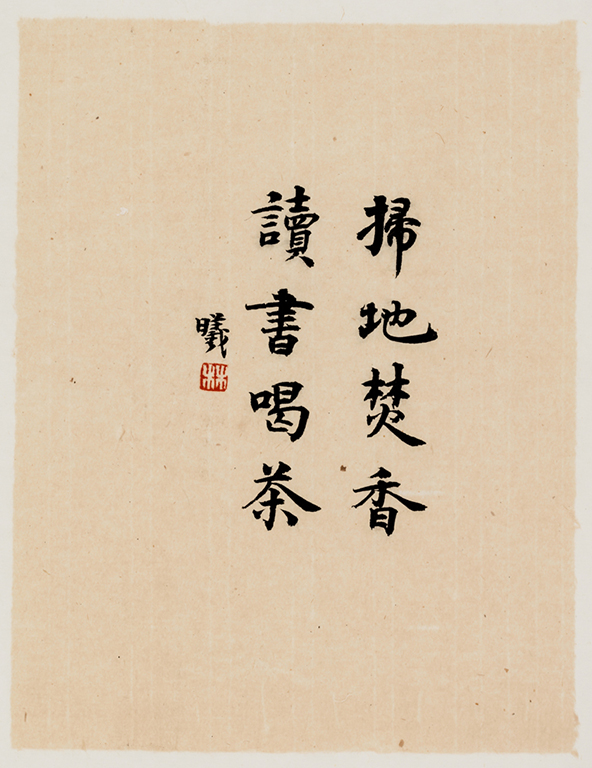 掃地焚香
讀書喝茶
曦
林